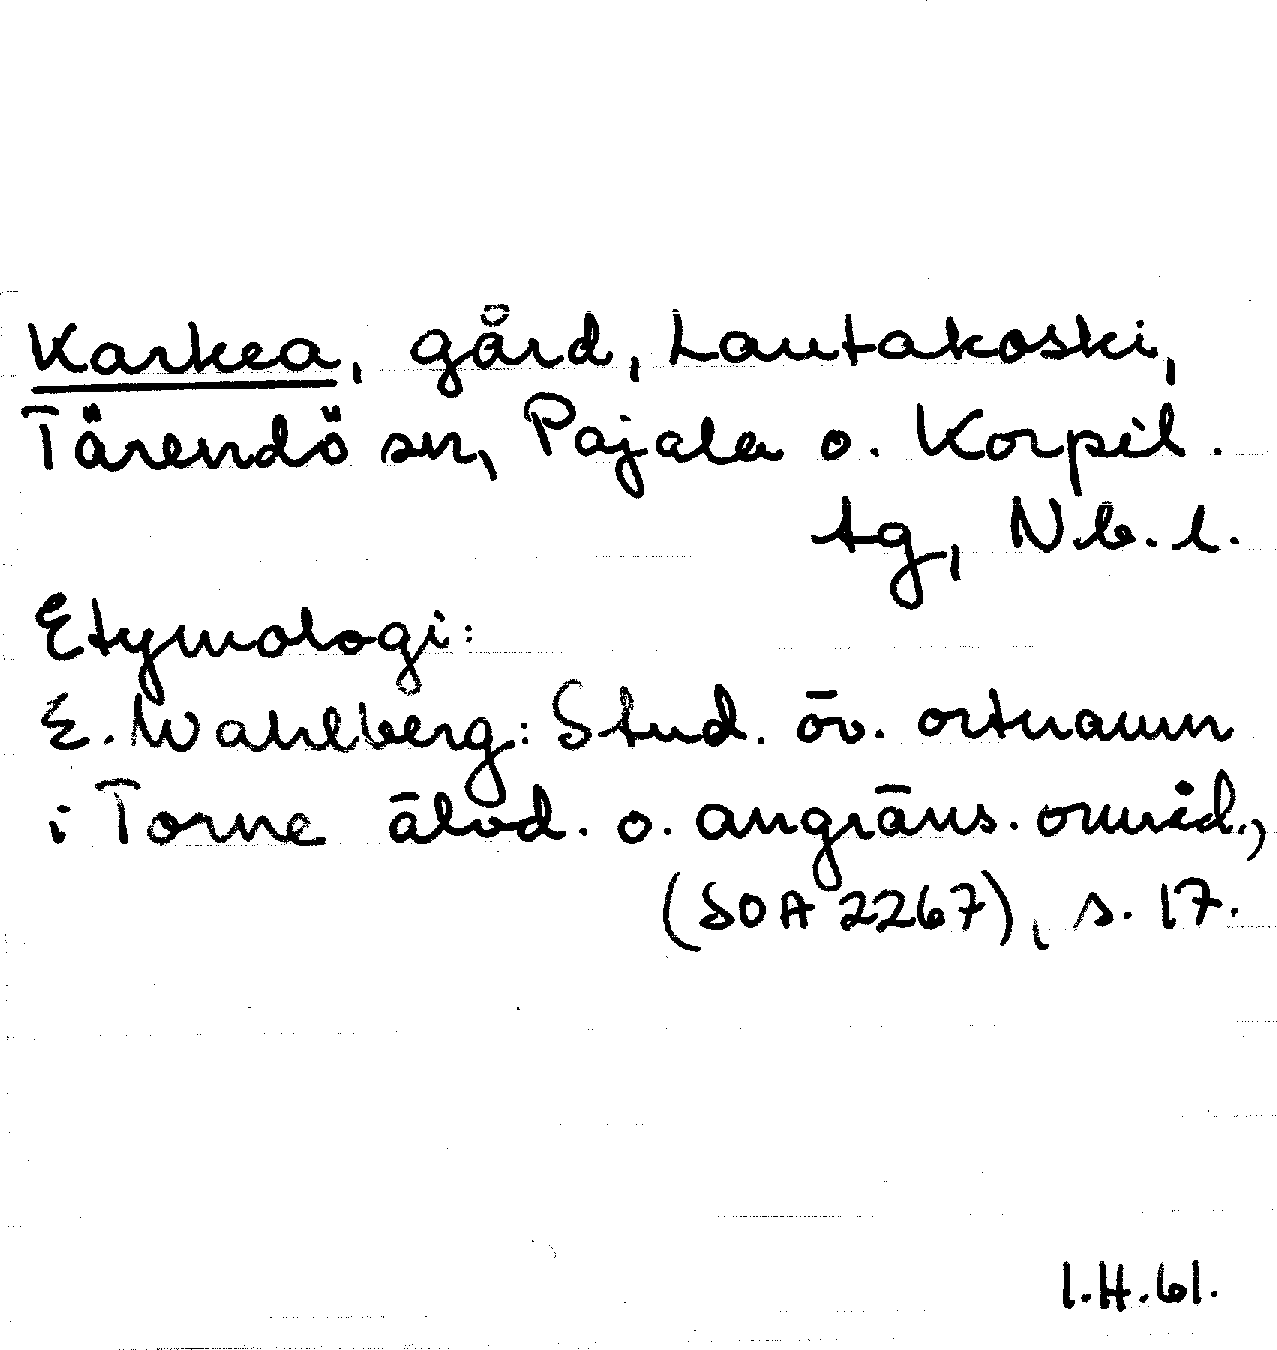 Karkea, gård, Lautakoski,
Tärendö sn, Pajala o. Korpil.
tg, Nb. l.
Etymologi:
E. Wahlberg: Stud. öv. ortnamn
i Torne älvd. o. angräns. områd.,
(SOA 2267), s. 17.
I.H.61.